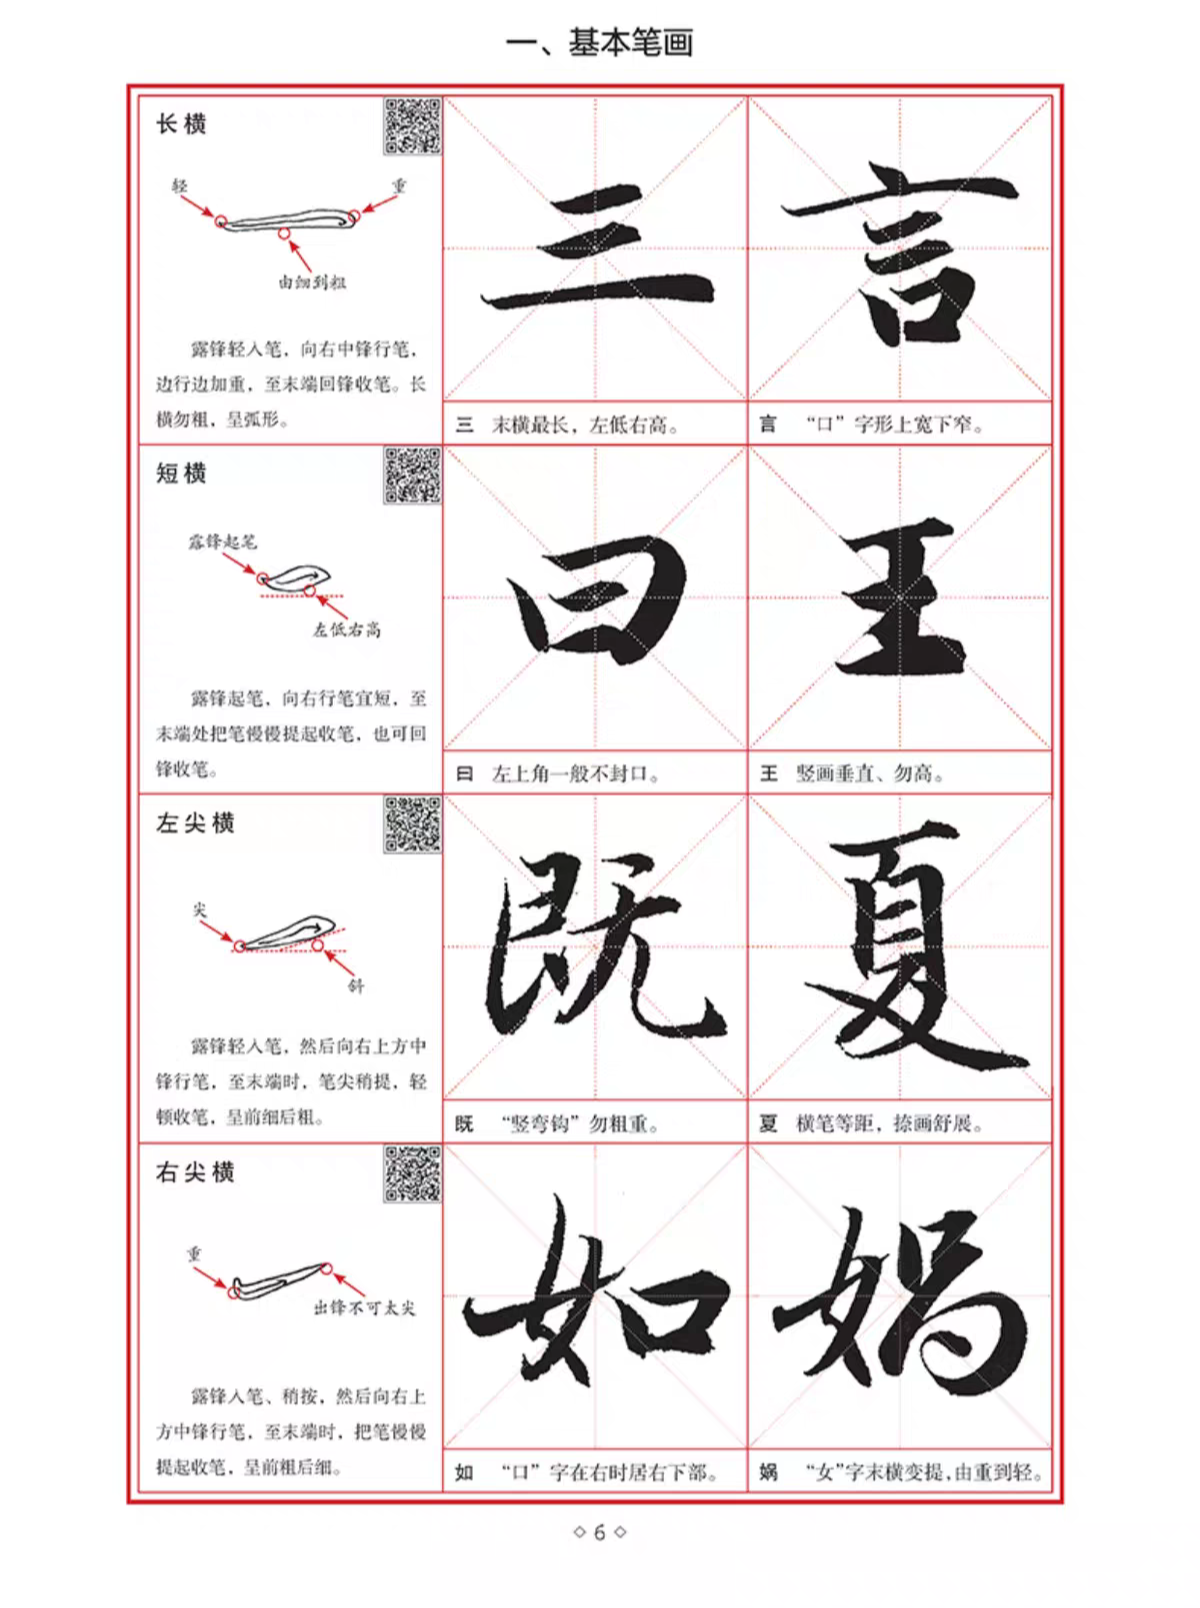 一、基本笔画
长横
轻
重
由细到粗
露锋轻入笔，向右中锋行笔，
边行边加重，至末端回锋收笔。长
横勿粗，呈弧形。
三
言
三 末横最长，左低右高。
言 “口”字形上宽下窄。
短横
露锋起笔
左低右高
露锋起笔，向右行笔宜短，至
末端处把笔慢慢提起收笔，也可回
锋收笔。
曰
王
曰 左上角一般不封口。
王 竖画垂直、勿高。
左尖横
尖
斜
露锋轻入笔，然后向右上方中
锋行笔，至末端时，笔尖稍提，轻
顿收笔，呈前细后粗。
既
夏
既 “竖弯钩”勿粗重。
夏 横笔等距，捺画舒展。
右尖横
重
出锋不可太尖
露锋入笔、稍按，然后向右上
方中锋行笔，至末端时，把笔慢慢
提起收笔，呈前粗后细。
如
娲
如 “口”字在右时居右下部。
娲 “女”字末横变提，由重到轻。
6